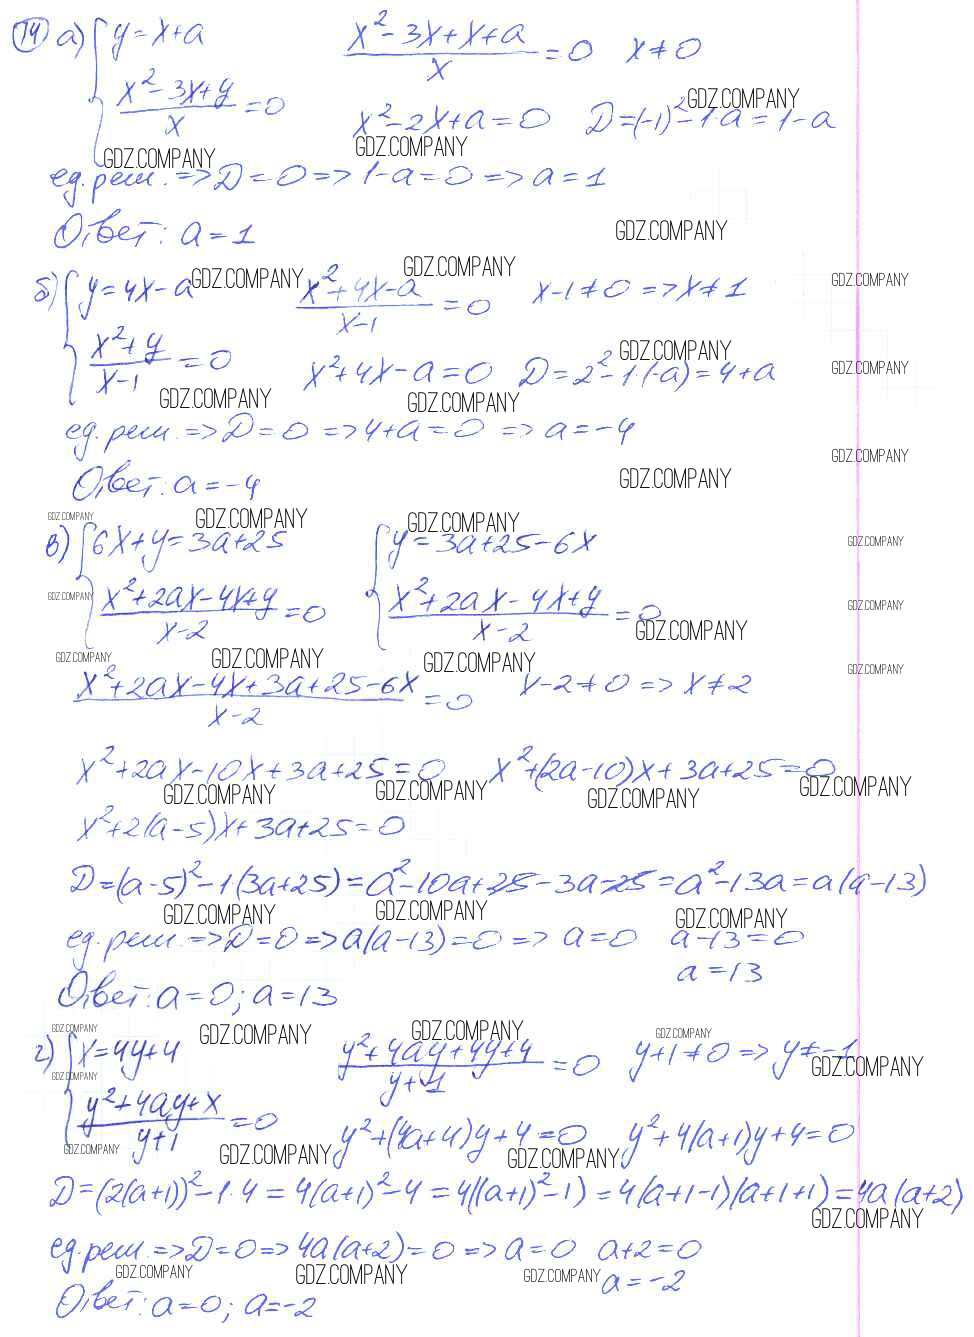 14 а) { y = x+a   (x² - 3x + x + a)/x = 0   x ≠ 0
(x² - 3x + y)/x = 0   x² - 2x + a = 0   D = (-1)² - 1·a = 1 - a
GDZ.COMPANY
GDZ.COMPANY GDZ.COMPANY
ед. реш. => D = 0 => 1 - a = 0 => a = 1
Ответ: a = 1
GDZ.COMPANY
б) { y = 4x - a   (x² + 4x - a)/(x-1) = 0   x - 1 ≠ 0 => x ≠ 1
GDZ.COMPANY GDZ.COMPANY GDZ.COMPANY
(x² + y)/(x-1) = 0   x² + 4x - a = 0   D = 2² - 1·(-a) = 4 + a
GDZ.COMPANY GDZ.COMPANY
GDZ.COMPANY GDZ.COMPANY
ед. реш. => D = 0 => 4 + a = 0 => a = -4
GDZ.COMPANY
Ответ: a = -4
GDZ.COMPANY
GDZ.COMPANY GDZ.COMPANY GDZ.COMPANY
в) { 6x + y = 3a + 25   { y = 3a + 25 - 6x
GDZ.COMPANY
(x² + 2ax - 4x + y)/(x-2) = 0   (x² + 2ax - 4x + y)/(x-2) = 0
GDZ.COMPANY GDZ.COMPANY GDZ.COMPANY
GDZ.COMPANY GDZ.COMPANY GDZ.COMPANY GDZ.COMPANY
(x² + 2ax - 4x + 3a + 25 - 6x)/(x-2) = 0   x - 2 ≠ 0 => x ≠ 2
x² + 2ax - 10x + 3a + 25 = 0   x² + (2a - 10)x + 3a + 25 = 0
GDZ.COMPANY GDZ.COMPANY GDZ.COMPANY GDZ.COMPANY
x² + 2(a - 5)x + 3a + 25 = 0
D = (a - 5)² - 1(3a + 25) = a² - 10a + 25 - 3a - 25 = a² - 13a = a(a - 13)
GDZ.COMPANY GDZ.COMPANY GDZ.COMPANY
ед. реш. => D = 0 => a(a - 13) = 0 => a = 0   a - 13 = 0
a = 13
Ответ: a = 0; a = 13
GDZ.COMPANY GDZ.COMPANY GDZ.COMPANY GDZ.COMPANY
г) { x = 4y + 4   (y² + 4ay + 4y + 4)/(y+1) = 0   y + 1 ≠ 0 => y ≠ -1
GDZ.COMPANY GDZ.COMPANY
(y² + 4ay + x)/(y+1) = 0   y² + (4a + 4)y + 4 = 0   y² + 4(a+1)y + 4 = 0
GDZ.COMPANY GDZ.COMPANY GDZ.COMPANY
D = (2(a+1))² - 1·4 = 4(a+1)² - 4 = 4((a+1)² - 1) = 4(a+1-1)(a+1+1) = 4a(a+2)
GDZ.COMPANY
ед. реш. => D = 0 => 4a(a+2) = 0 => a = 0   a + 2 = 0
GDZ.COMPANY GDZ.COMPANY GDZ.COMPANY a = -2
Ответ: a = 0; a = -2